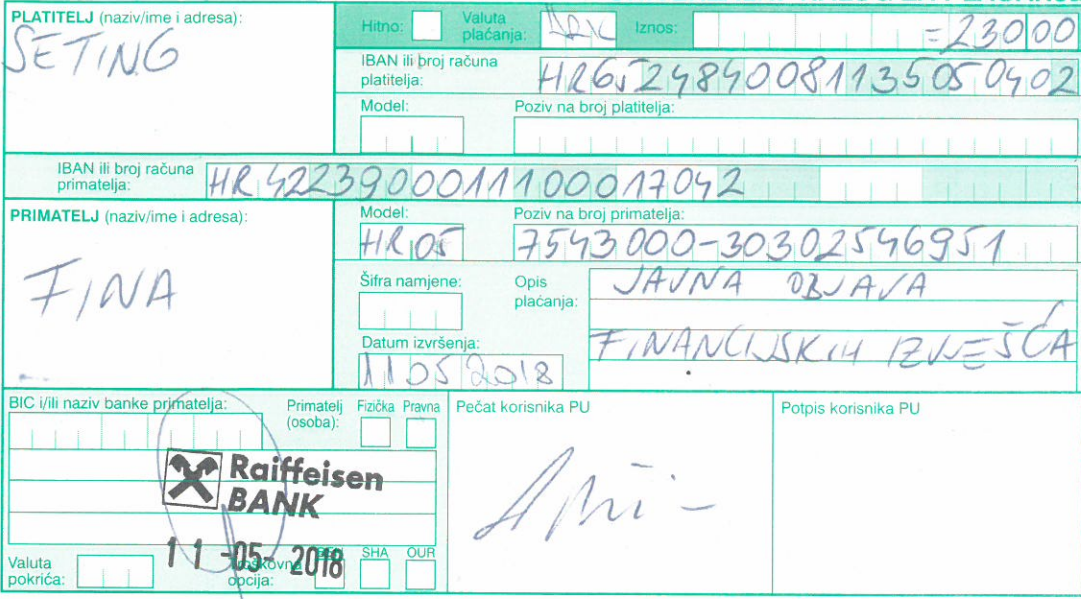 PLATITELJ (naziv/ime i adresa):
SETING
Hitno:
Valuta plaćanja:
Iznos: =23000
IBAN ili broj računa platitelja: HR6524840081135050402
Model:
Poziv na broj platitelja:
IBAN ili broj računa primatelja: HR4223900011100017042
PRIMATELJ (naziv/ime i adresa):
FINA
Model: HR05
Poziv na broj primatelja: 7543000-30302546951
Šifra namjene:
Opis plaćanja: JAVNA OBJAVA
FINANCIJSKIH IZVJEŠĆA
Datum izvršenja: 11052018
BIC i/ili naziv banke primatelja:
Primatelj (osoba):
Fizička Pravna
Pečat korisnika PU
Potpis korisnika PU
Raiffeisen
BANK
11-05-2018
Valuta pokrića:
Troškovna opcija:
SHA OUR